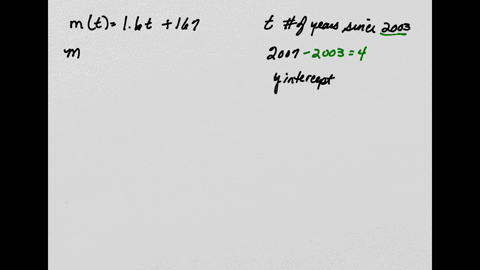 m(t) = 1.6t + 167
m
t # of years since 2003
2007 - 2003 = 4
y intercept